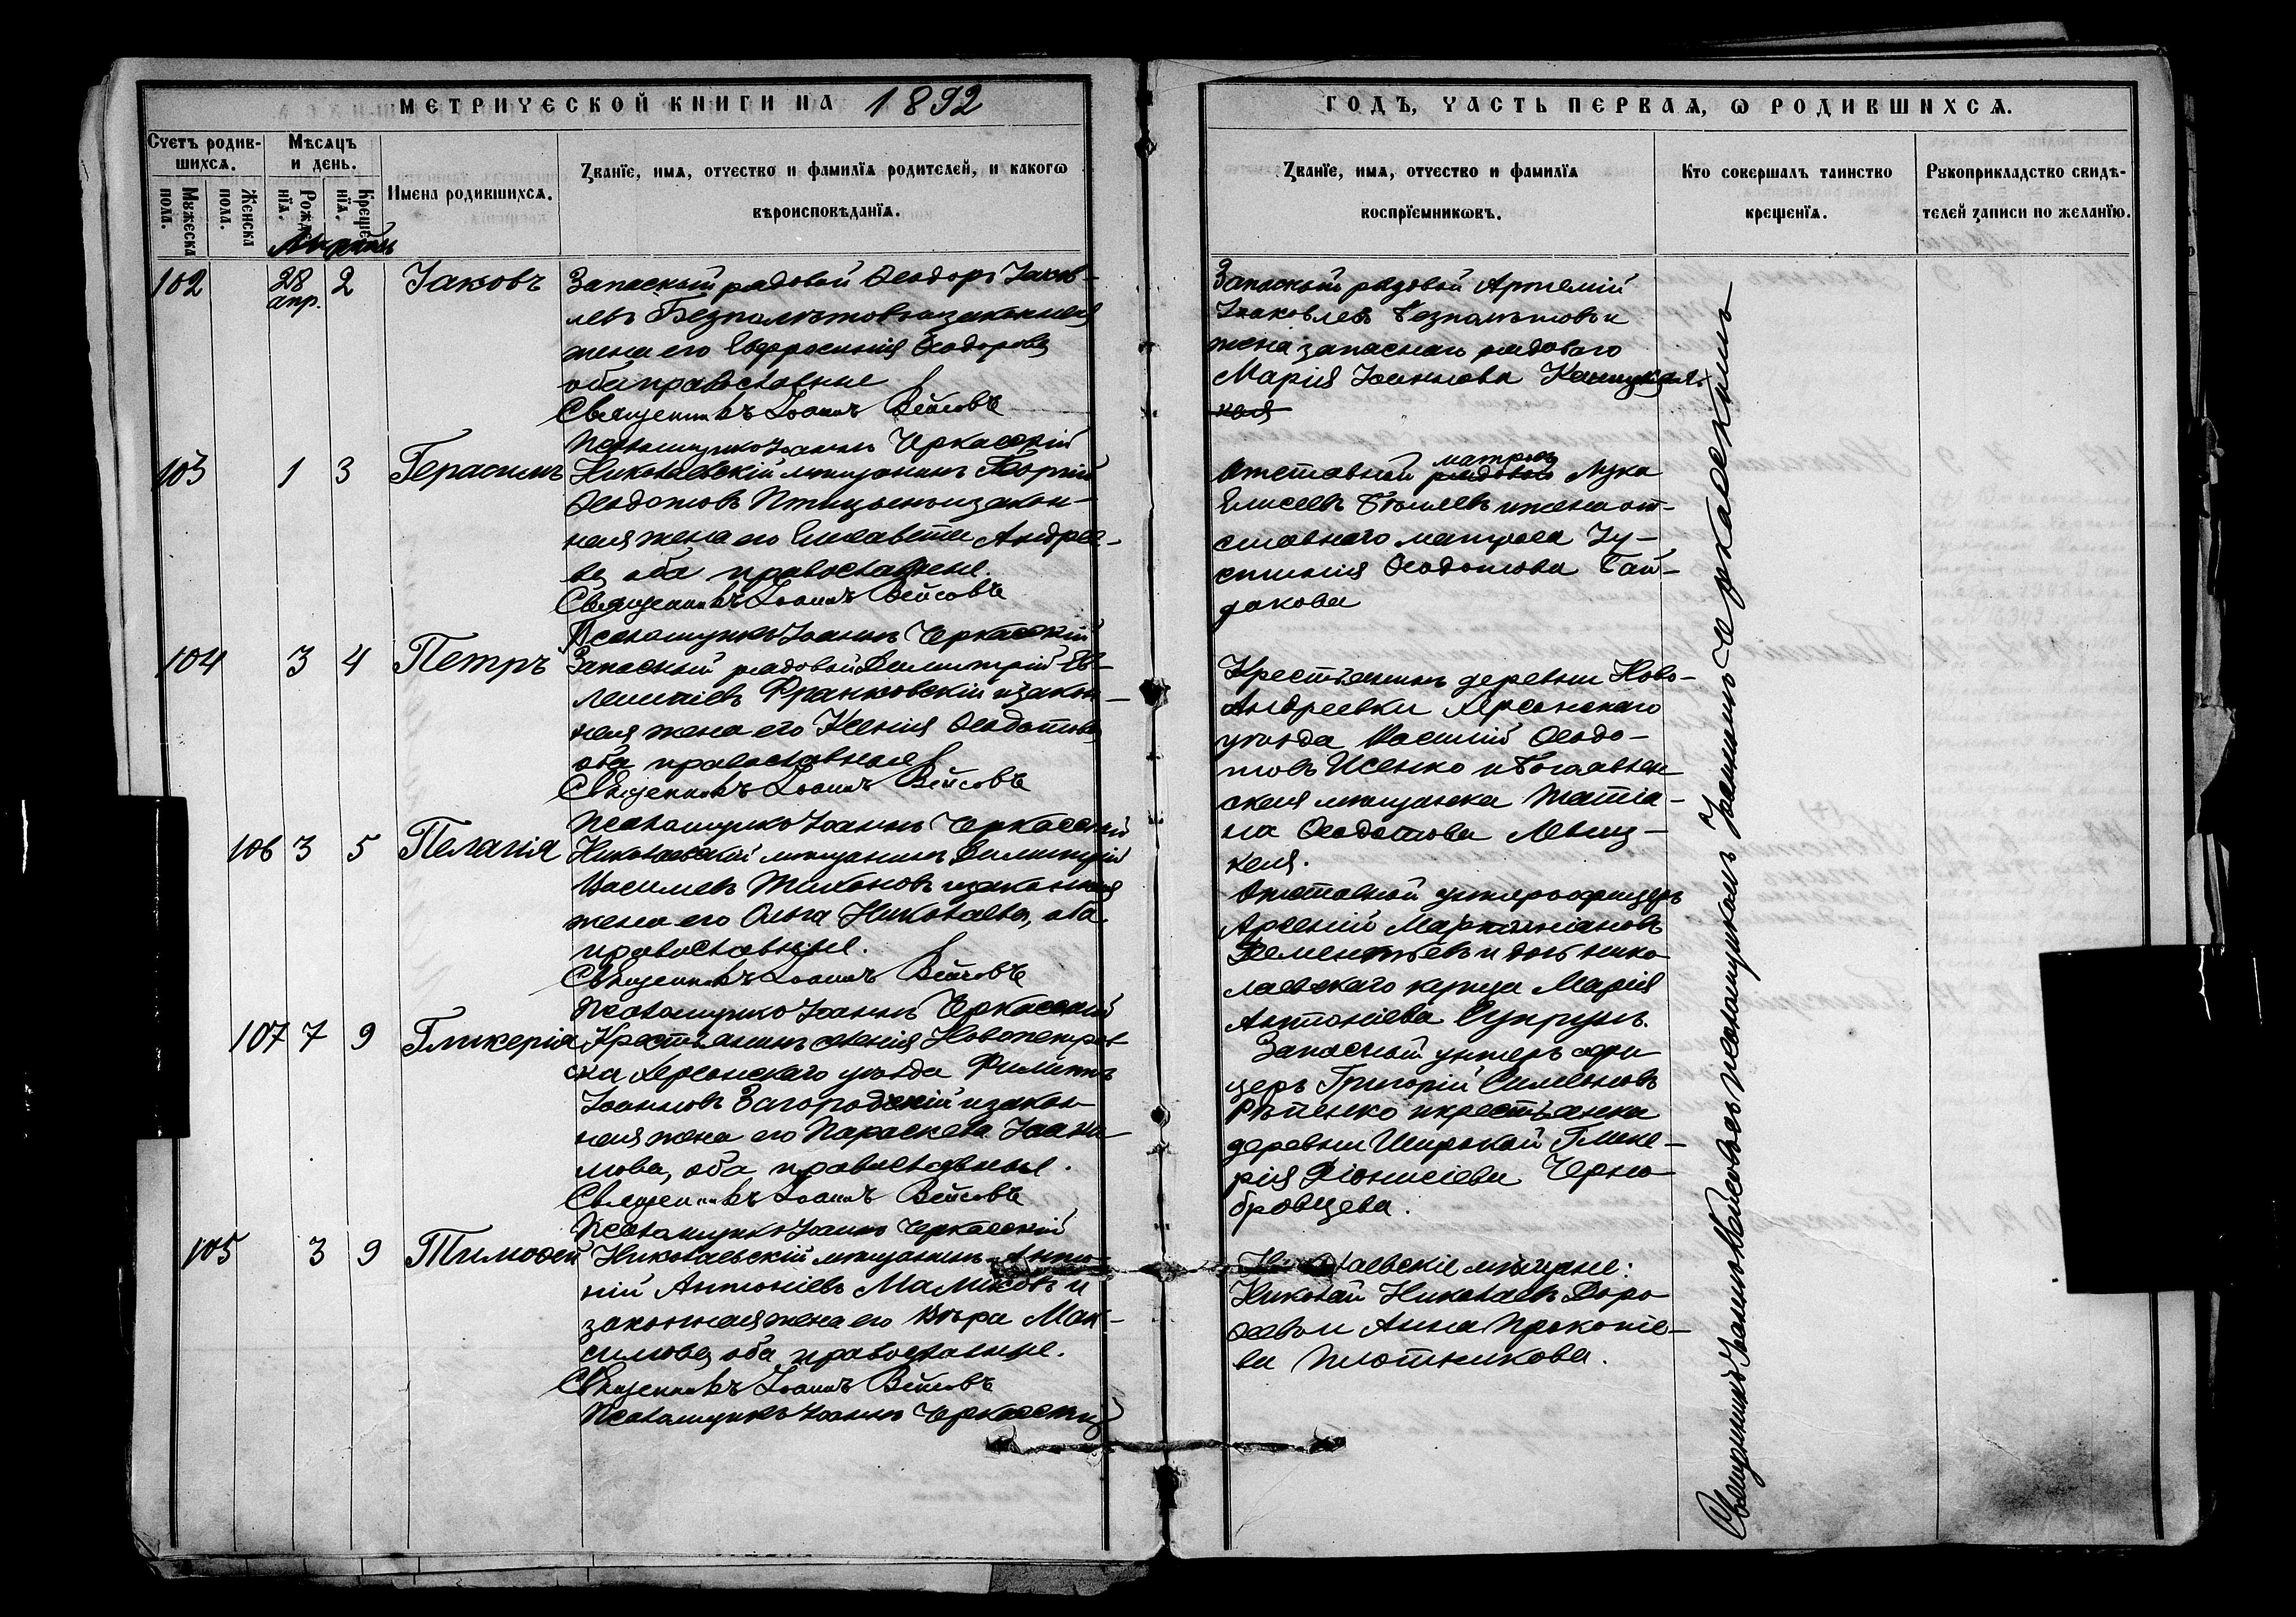 МЕТРИЧЕСКОЙ КНИГИ НА 1892
ГОДЪ, ЧАСТЬ ПЕРВАЯ, Ѡ РОДИВШИХСЯ.
Счетъ родив-
шихся.
Мужеска
пола.
Женска
пола.
Мѣсяцъ
и день.
Рожде
нїя.
Креще
нїя.
Имена родившихся.
Званїе, имя, отчество и фамилїя родителей, и какогѡ
вѣроисповѣданїя.
Званїе, имя, отчество и фамилїя
воспрїемникѡвъ.
Кто совершалъ таинство
крещенїя.
Рукоприкладство свидѣ-
телей записи по желанїю.
102 28 апр. 2 Іаковъ
Запасный рядовой Ѳеодоръ Іаков-
левъ Безпалътовъ и законная
жена его Евфросинія Ѳеодорова
оба православные
Священникъ Іоаннъ Вейсовъ
Псаломщикъ Іоаннъ Черкасскій
Запасный рядовой Артемій
Іаковлевъ Безпалътовъ и
жена запаснаго рядоваго
Марія Іоаннова
103 1 3 Герасимъ
Николаевскій мѣщанинъ Георгій
Ѳеодотовъ Птицынъ и закон-
ная жена его Елисавета Андрее-
ва, оба православные.
Священникъ Іоаннъ Вейсовъ
Псаломщикъ Іоаннъ Черкасскій
матросъ
Отставной рядовой Лука
Елисеевъ и жена от-
ставнаго матроса Іу-
стинія Ѳеодотова Гай-
дакова
104 3 4 Петръ
Запасный рядовой Димитрій Ев-
Франковскій и закон-
ная жена его Ксенія Ѳеодотова
оба православные
Священникъ Іоаннъ Вейсовъ
Псаломщикъ Іоаннъ Черкасскій
Крестьянинъ деревни Ново-
Андреевки Херсонскаго
уѣзда Василій Ѳеодо-
товъ Исенко и Богоявлен
ская мѣщанка Татіа-
на Ѳеодотова Левиц-
кая.
106 3 5 Пелагія
Николаевскій мѣщанинъ Димитрій
Васильевъ Тихоновъ и законная
жена его Ольга Николаева, оба
православные.
Священникъ Іоаннъ Вейсовъ
Псаломщикъ Іоаннъ Черкасскій
Отставной унтерофицеръ
Арсеній Маркіановъ
Дементьевъ и дочь нико
лаевскаго купца Марія
Антоніева Супрунъ.
107 7 9 Гликерія
Крестьянинъ селенія Новопетров
ска Херсонскаго уѣзда Филиппъ
Іоанновъ Загородскій и закон
ная жена его Параскева Іоан
нова, оба православные.
Священникъ Іоаннъ Вейсовъ
Псаломщикъ Іоаннъ Черкасскій
Запасный унтеръ офи
церъ Григорій Симеоновъ
Рѣпенко и крестьянка
деревни Широкой Глике-
рія Діонисіева Черно
бровцева.
105 3 9 Тимоѳей
Николаевскій мѣщанинъ Анто-
ній Антоніевъ Малисовъ и
законная жена его Вѣра Мак-
симова, оба православные.
Священникъ Іоаннъ Вейсовъ
Псаломщикъ Іоаннъ Черкасскій
Николаевскіе мѣщане:
Николай Николаевъ Доро
ѳеевъ и Анна Прокопіе-
ва Плотникова.
Священникъ Іоаннъ Вейсовъ съ псаломщикомъ Іоанномъ Черкасскимъ